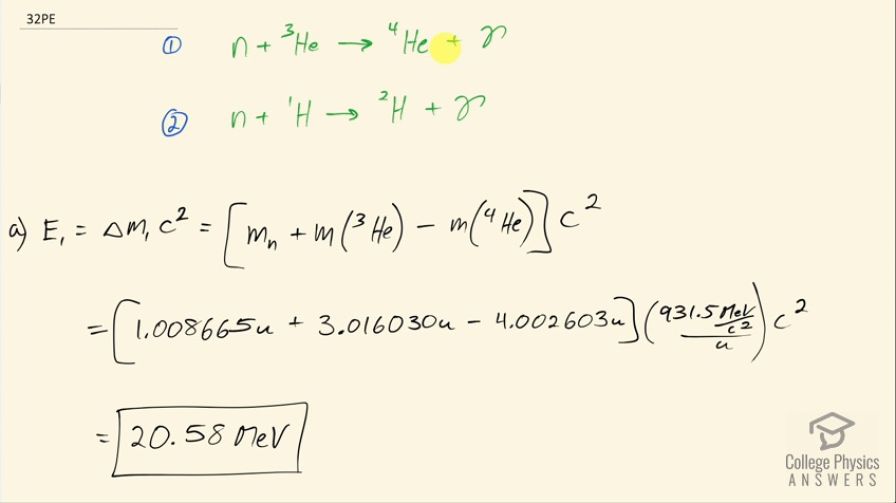 32PE
① n + ³He → ⁴He + γ
② n + ¹H → ²H + γ
a) E₁ = Δm₁c² = [mₙ + m(³He) − m(⁴He)]c²
= [1.008665u + 3.016030u − 4.002603u](931.5 MeV/c²/u)c²
= 20.58 MeV
College Physics
ANSWERS